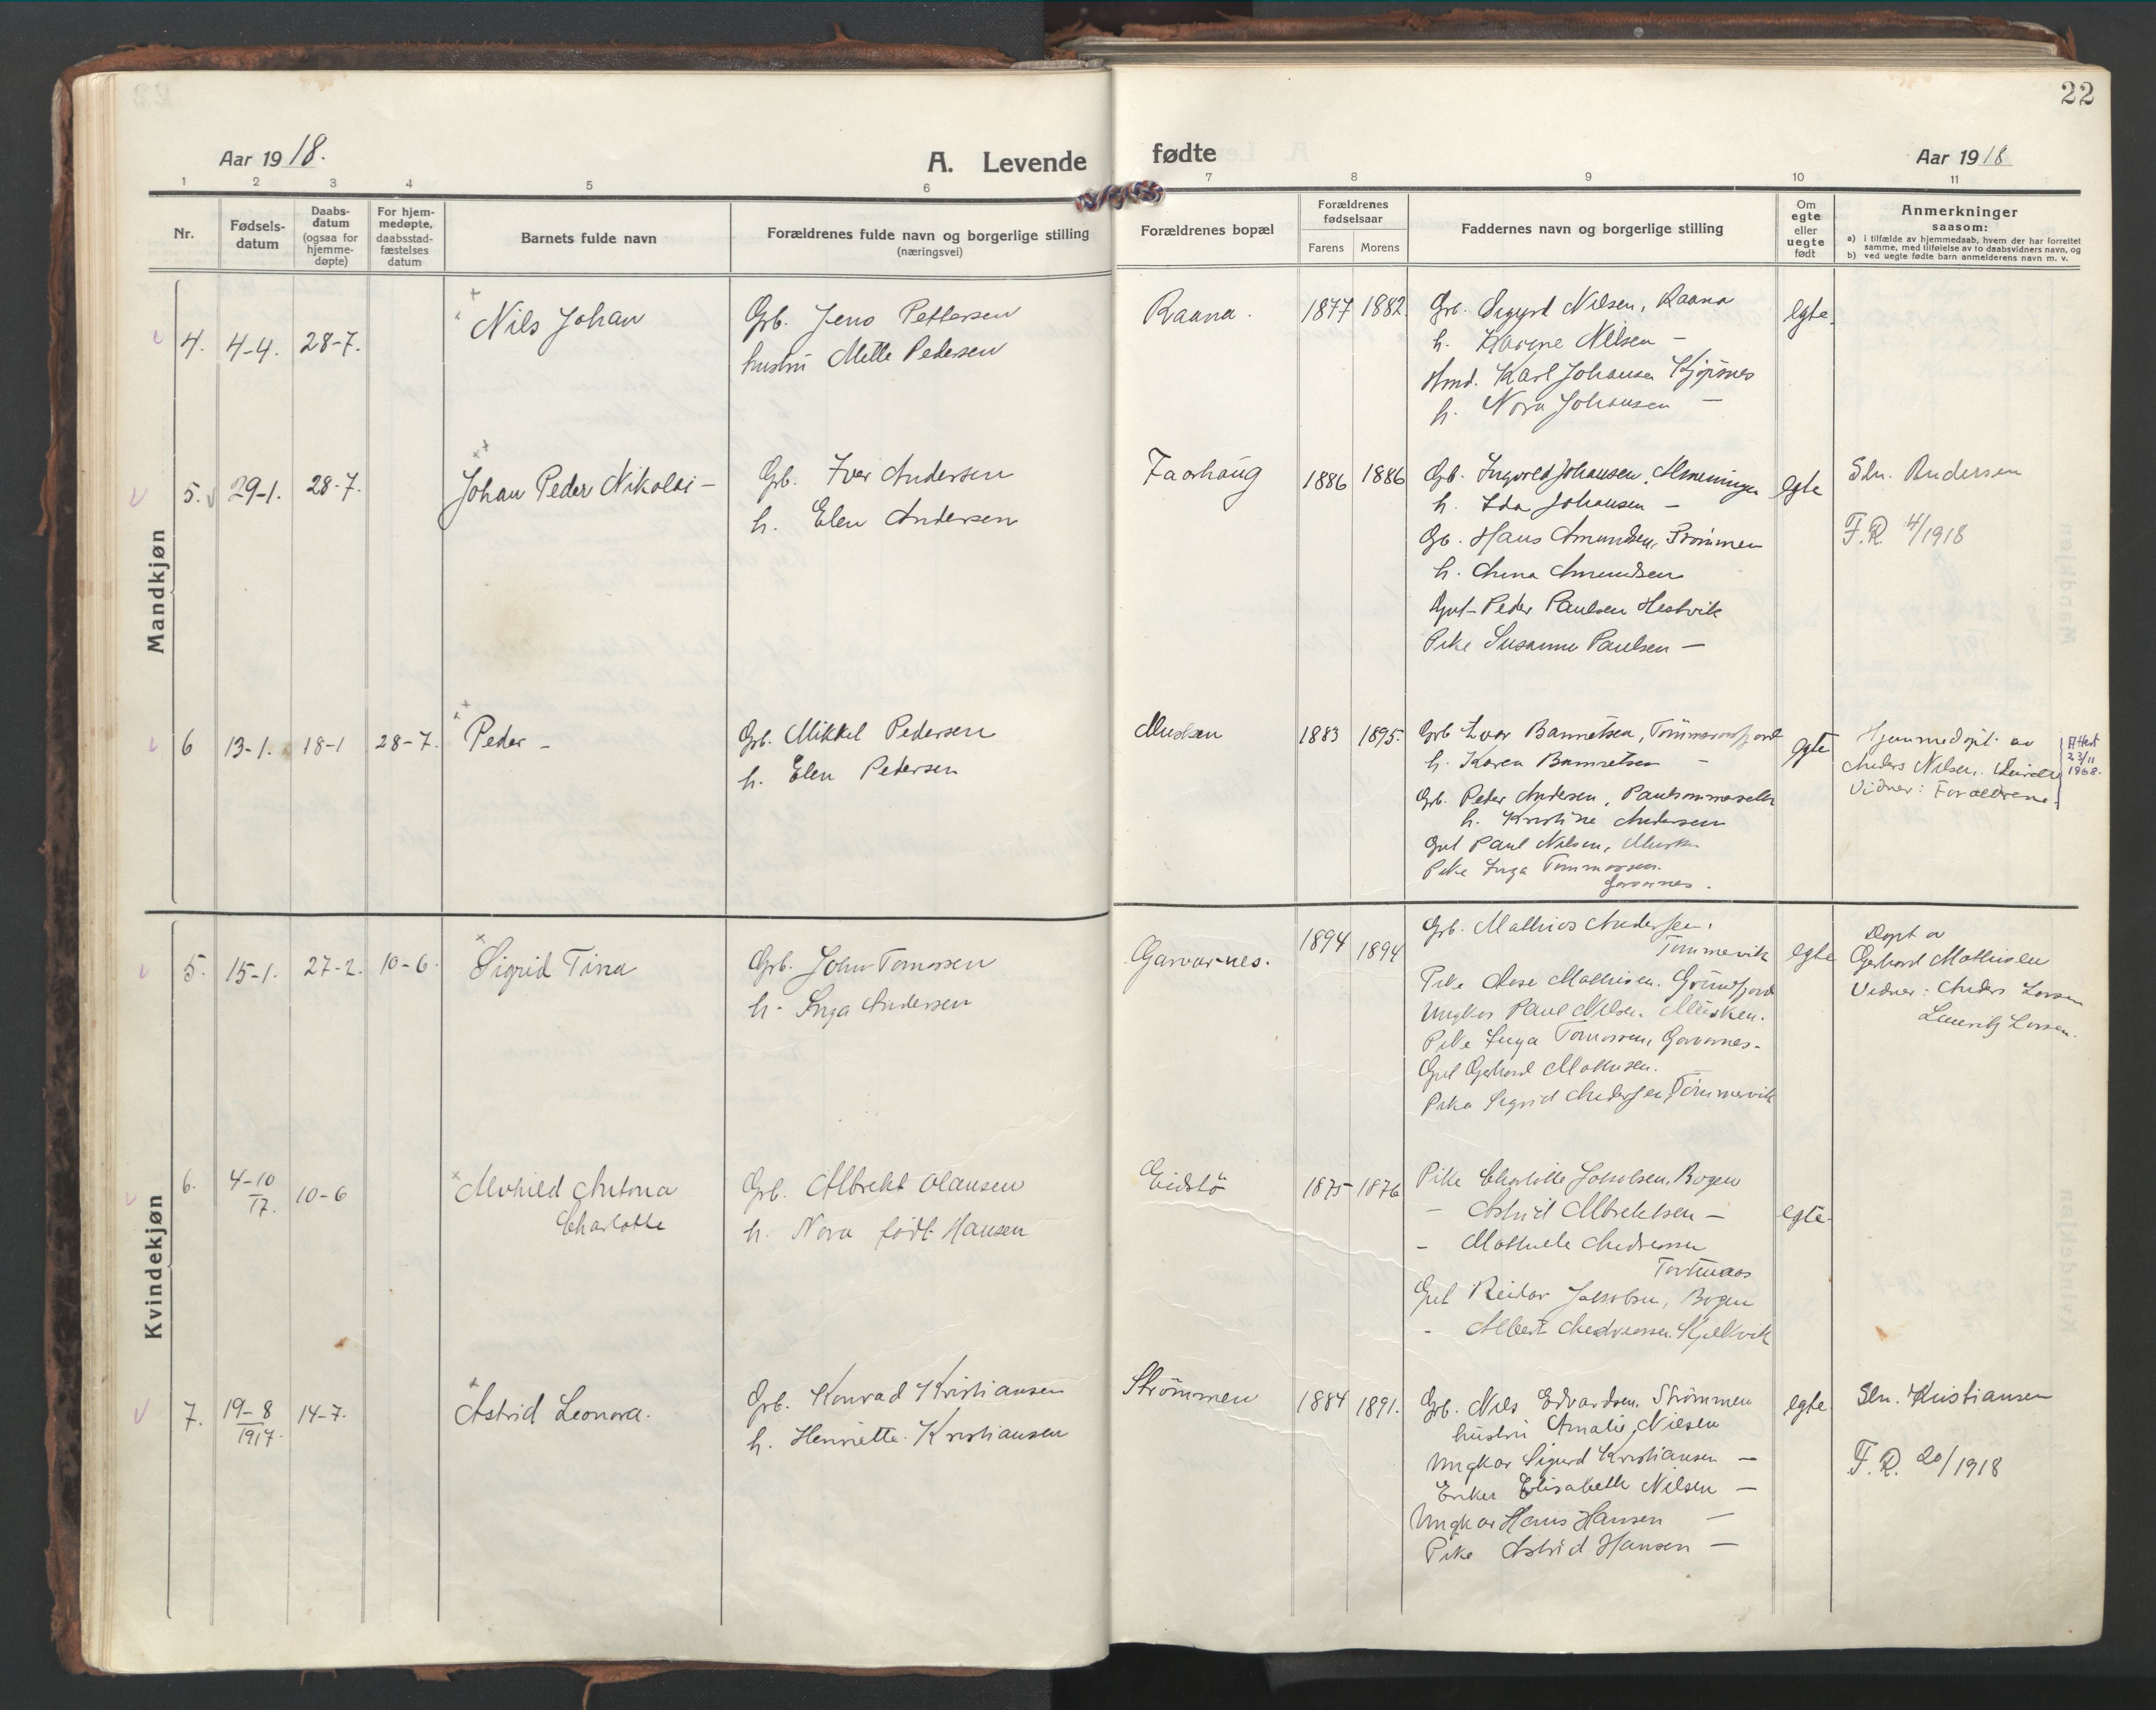 22
Aar 1918.
A. Levende fødte
Aar 1918
1 2 3 4 5 6 7 8 9 10 11
Nr.
Fødsels-
datum
Daabs-
datum
(ogsaa for
hjemme-
døpte)
For hjem-
medøpte,
daabsstad-
fæstelses
datum
Barnets fulde navn
Forældrenes fulde navn og borgerlige stilling
(næringsvei)
Forældrenes bopæl
Forældrenes
fødselsaar
Farens Morens
Faddernes navn og borgerlige stilling
Om
egte
eller
uegte
født
Anmerkninger
saasom:
a) i tilfælde av hjemmedaab, hvem der har forrettet
samme, med tilføielse av to daabsvidners navn, og
b) ved uegte fødte barn anmelderens navn m. v.
Mandkjøn
4. 4-4. 28-7.
Nils Johan
Grb. Jens Pettersen
hustru Mette Pedersen
Raana.
1877 1882.
Grb. Sigurd Nilsen, Raana
h. Karene Nilsen —
Hmd. Karl Johansen Kjøpsnes
h. Nora Johansen —
egte.
5. 29-1. 28-7.
Johan Peder Nikolai —
Gb. Iver Andersen
h. Elen Andersen
Taarhaug
1886 1886
Gb. Ingvald Johansen, Almenningen
h. Ida Johansen —
Gb. Hans Amundsen, Strømmen
h. Anna Amundsen
Gut Peder Paulsen Hestvik
Pike Susanne Paulsen —
egte
Sln. Andersen
F.R. 4/1918
6 13-1. 18-1 28-7.
Peder —
Grb. Mikkel Pedersen
h. Elen Pedersen
Musken
1883 1895.
Grb. Ivar Bannetsen, Tømmeraasfjord
h. Karen Bannetsen —
Grb. Peder Andersen,
h. Kristine Andersen
Gut Paul Nilsen, Musken
Pike Inga Tommassen.
Gavarnes.
egte
Hjemmedøpt av
Anders Nilsen.
Vidner: Forældrene.
Attest
23/11
1968.
Kvindekjøn
5. 15-1. 27-2. 10-6.
Sigrid Tina
Grb. John Tomassen
h. Inga Andersen
Gavarnes.
1894 1894
Grb. Mathias Andersen,
Tømmervik
Pike Aase Mathisen. Grundfjord
Ungkar Paul Nilsen. Musken.
Pike Inga Tomassen, Gavarnes.
Gut Gerhard Mathisen.
Pike Sigrid Andersen, Tømmervik
egte
Døpt av
Gerhard Mathisen
Vidner: Anders Larsen
Lauritz Larsen.
6. 4-10
17. 10-6
Alvhild Antona
Charlotte
Grb. Albrekt Olausen
h. Nora født Hansen
Eidstø
1875 1876
Pike Charlotte Jakobsen, Bogen
— Astrid Albrektsen —
- Mathilde Andreassen
Gut Reidar Jakobsen, Bogen
- Albert Andreassen. Kjelkvik
egte.
7. 19-8
1917. 14-7.
Astrid Leonora.
Grb. Konrad Kristiansen
h. Henriette Kristiansen
Strømmen
1884 1891.
Grb. Nils Edvardsen. Strømmen
hustru Amalie Nilsen
Ungkar Sigurd Kristiansen —
Enken Elisabeth Nilsen —
Ungkar Hans Hansen —
Pike Astrid Hansen —
egte
Sln. Kristiansen
F.R. 20/1918